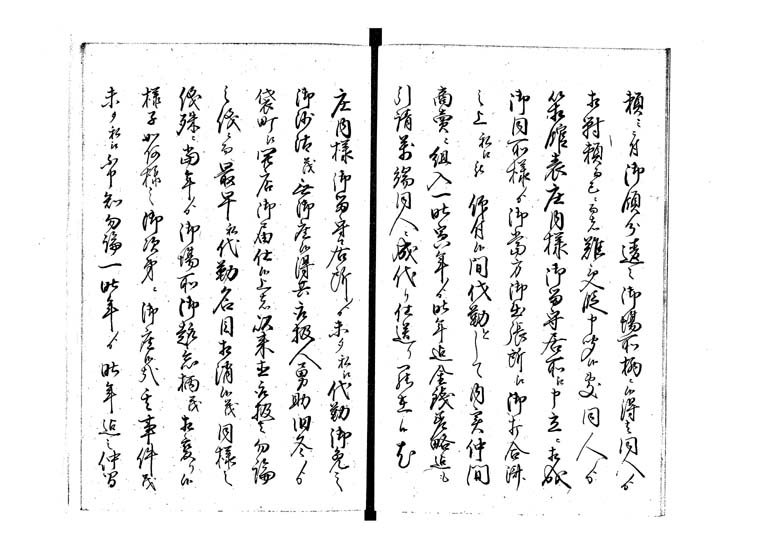 頼ニ付御領分遠之御場所柄ニ候得共同人ゟ
相対頼而已ニ而者難之段申聞候処同人ゟ
箱館表庄内様御留守居所江申立ニ相成
御同所様ゟ御当方御出張所江御打合済
之上私江被仰付候間代勤として内実仲間
商売ニ組入一昨寅年ゟ昨年迄金銭差略迄も
引請万端同人ニ成代り仕送り
庄内様御留守居所ゟ未タ私江代勤御免之
御沙汰茂無御座候得共支配人勇助旧冬ゟ
袋町江罷居御届仕候上者以来支配者勿論
之儀ニ而最早私代勤名目相消候茂同様之
儀殊ニ当年ゟ御場所御趣意柄茂相変り候
様子如何様之御次第ニ御座候哉事件茂
未タ私江不申知勿論一昨年ゟ昨年迄之仲間